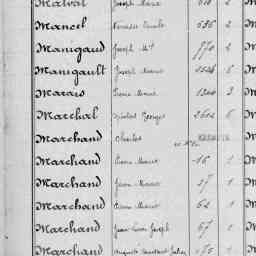 Malval Joseph Marie 610 2
Mancel 636 2
Manigaud Joseph Mie 770 2
Manigault Joseph Marie 6
Marais Pierre Marie 1200 3
Marchal Nicolas Georges 2612 6
Marchand Charles
Marchand Pierre Marie 16 1
Marchand Jean Marie 37 1
Marchand Pierre Marie 62 1
Marchand Jean Louis Joseph 67 1
Marchand Auguste 175 1